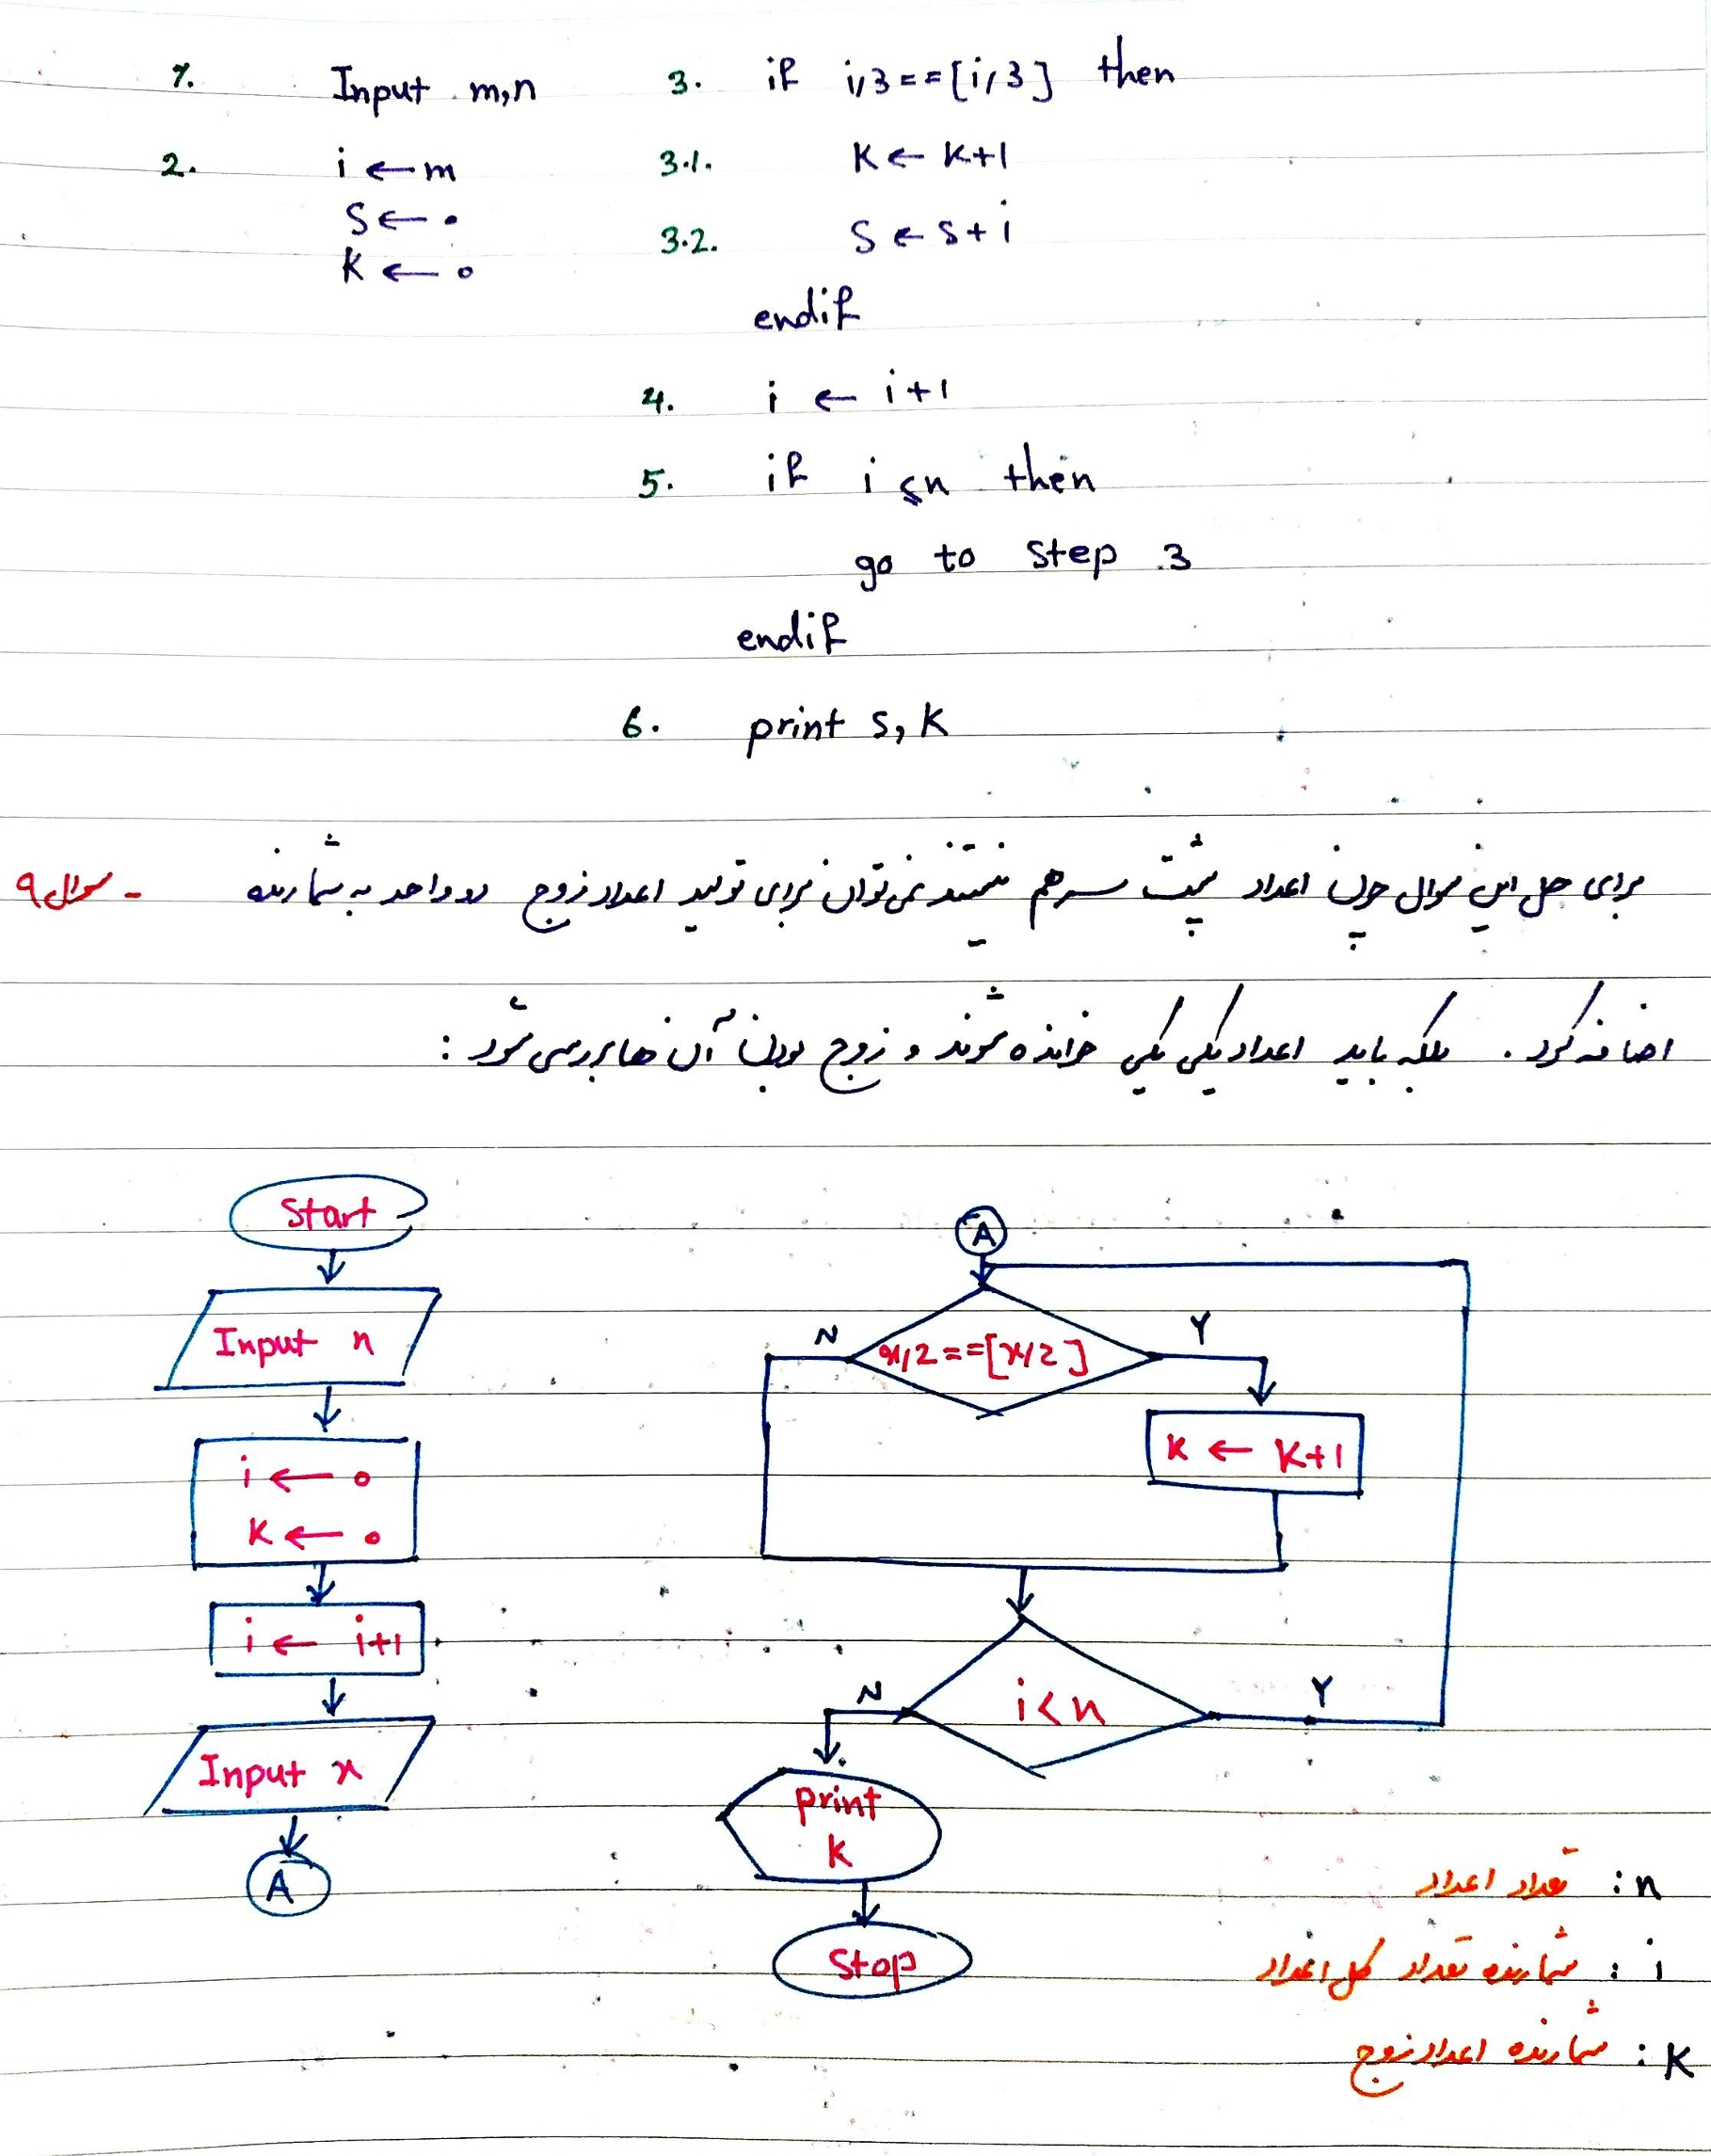 1. Input m,n
2. i ← m
S ← 0
K ← 0
3. if i/3==[i/3] then
3.1. K ← K+1
3.2. S ← S+i
endif
4. i ← i+1
5. if i ≤n then
go to step 3
endif
6. print s, K
سوال ۹ - برای حل این سوال چون اعداد پشت سر هم نیستند نمی‌توان برای تولید اعداد زوج دو واحد به شمارنده
اضافه کرد. بلکه باید اعداد یکی یکی خوانده شوند و زوج بودن آن ها بررسی شود :
Start
Input n
i ← 0
K ← 0
i ← i+1
Input x
A
A
x/2==[x/2]
N
Y
K ← K+1
i<n
N
Y
print
K
Stop
n: تعداد اعداد
i : شمارنده تعداد کل اعداد
K: شمارنده اعداد زوج